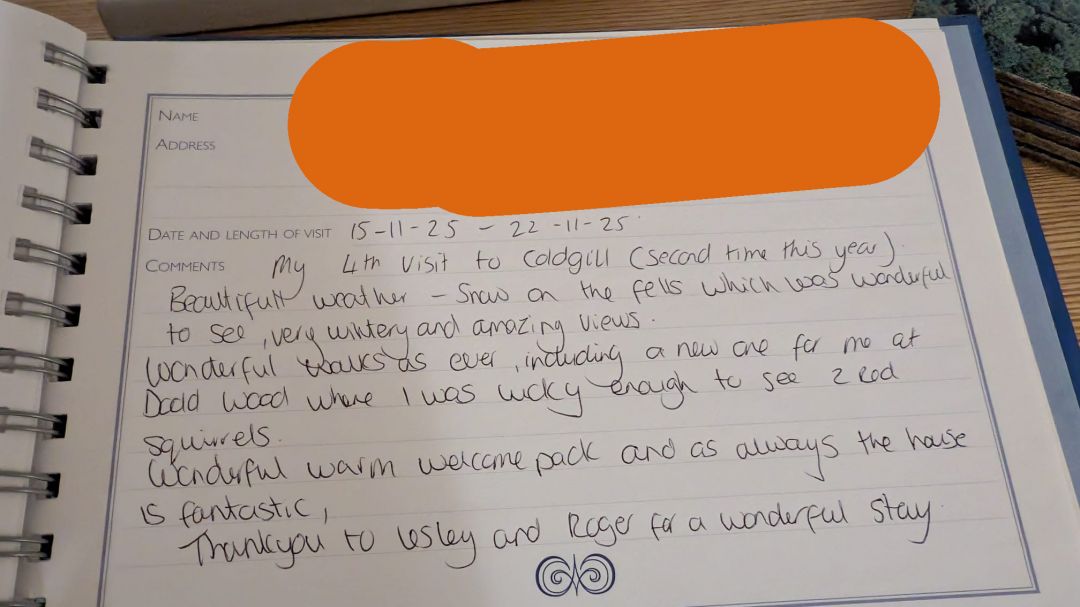 NAME
ADDRESS
DATE AND LENGTH OF VISIT 15-11-25 - 22-11-25
COMMENTS My 4th visit to Coldgill (second time this year).
Beautifull weather - Snow on the fells which was wonderful
to see, very wintery and amazing views.
Wonderful walks as ever, including a new one for me at
Dodd Wood where I was lucky enough to see 2 Red
squirrels.
Wonderful warm welcome pack and as always the house
is fantastic,
Thankyou to Lesley and Roger for a wonderful stay.